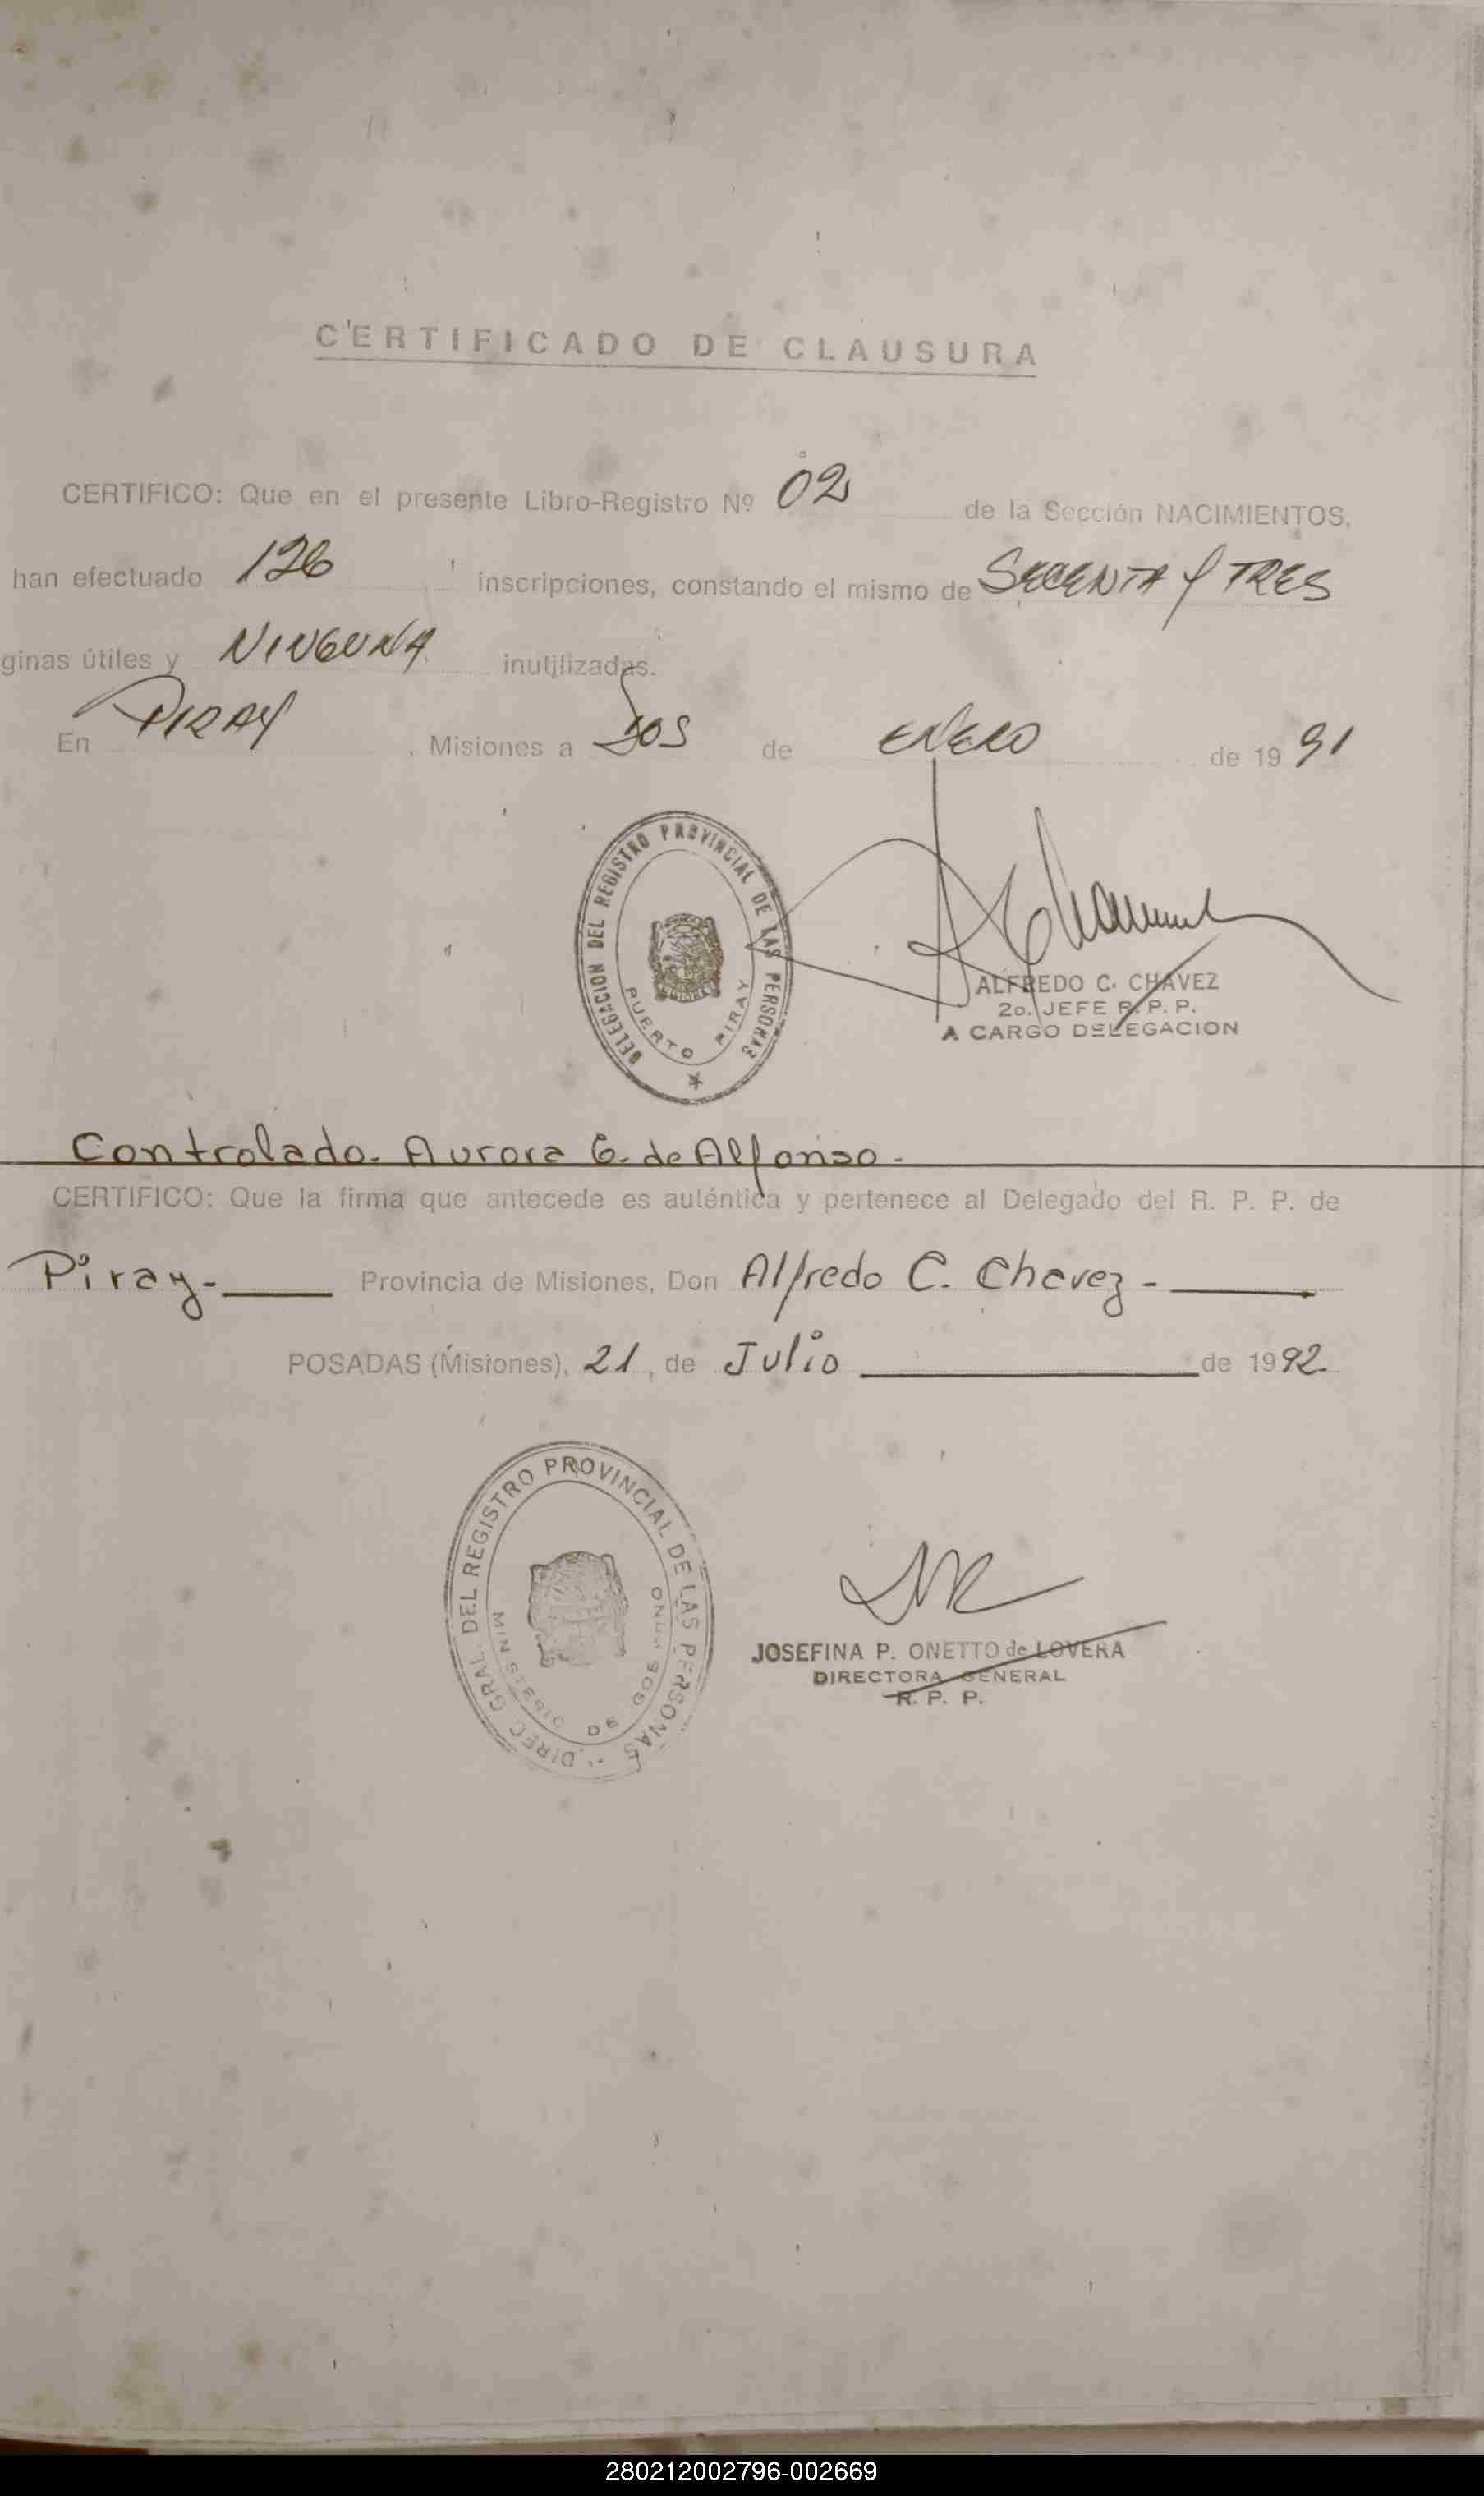 CERTIFICADO DE CLAUSURA
CERTIFICO: Que en el presente Libro-Registro Nº 02 de la Sección NACIMIENTOS,
han efectuado 126 inscripciones, constando el mismo de SECENTA Y TRES
ginas útiles y NINGUNA inutilizadas.
En PIRAY , Misiones a DOS de ENERO de 1991
DELEGACION DEL REGISTRO PROVINCIAL DE LAS PERSONAS
PUERTO PIRAY
ALFREDO C. CHAVEZ
2o. JEFE R. P. P.
A CARGO DELEGACION
Controlado. Aurora G. de Alfonso.-
CERTIFICO: Que la firma que antecede es auténtica y pertenece al Delegado del R. P. P. de
Piray- Provincia de Misiones, Don Alfredo C. Chavez -
POSADAS (Misiones), 21, de Julio de 1992.
DIREC. GRAL. DEL REGISTRO PROVINCIAL DE LAS PERSONAS
MINISTERIO DE GOBIERNO
JOSEFINA P. ONETTO de LOVERA
DIRECTORA GENERAL
R. P. P.
280212002796-002669